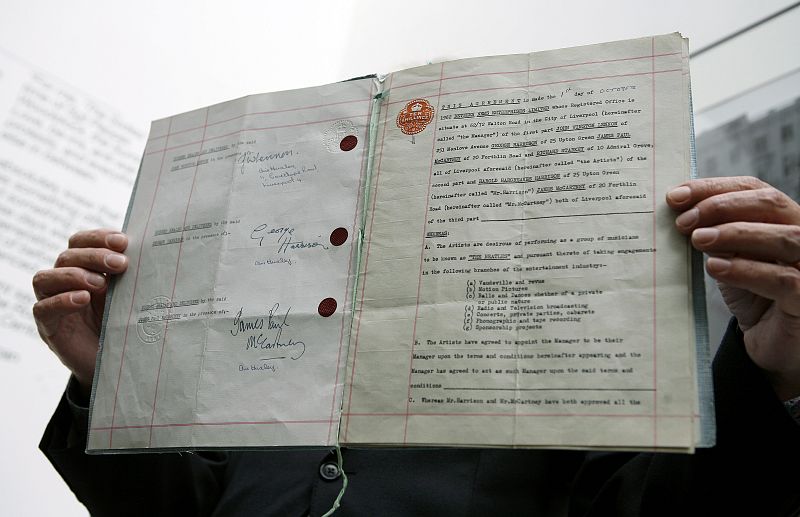 SIGNED SEALED AND DELIVERED by the said
JOHN WINSTON LENNON in the presence of:-
J W Lennon
Liverpool 4
SIGNED SEALED AND DELIVERED by the said
GEORGE HARRISON in the presence of:-
George
Harrison
SIGNED SEALED AND DELIVERED by the said
in the presence of:-
James Paul
McCartney
TEN
SHILLINGS
THIS AGREEMENT is made the 1st day of OCTOBER
1962 BETWEEN NEMS ENTERPRISES LIMITED whose Registered Office is
situate at 62/72 Walton Road in the City of Liverpool (hereinafter
called "the Manager") of the first part JOHN WINSTON LENNON of
251 Menlove Avenue GEORGE HARRISON of 25 Upton Green JAMES PAUL
McCARTNEY of 20 Forthlin Road and RICHARD STARKEY of 10 Admiral Grove,
all of Liverpool aforesaid (hereinafter called "the Artists") of the
second part and HAROLD HARGREAVES HARRISON of 25 Upton Green
(hereinafter called "Mr.Harrison") JAMES McCARTNEY of 20 Forthlin
Road (hereinafter called "Mr.McCartney") both of Liverpool aforesaid
of the third part
WHEREAS:
A. The Artists are desirous of performing as a group of musicians
to be known as "THE BEATLES" and pursuant thereto of taking engagements
in the following branches of the entertainment industry:-
(a) Vaudeville and revue
(b) Motion Pictures
(c) Balls and Dances whether of a private
or public nature
(d) Radio and Television broadcasting
(e) Concerts, private parties, cabarets
(f) Phonographic and tape recording
(g) Sponsorship projects
B. The Artists have agreed to appoint the Manager to be their
Manager upon the terms and conditions hereinafter appearing and the
Manager has agreed to act as such Manager upon the said terms and
conditions
C. Whereas Mr.Harrison and Mr.McCartney have both approved all the